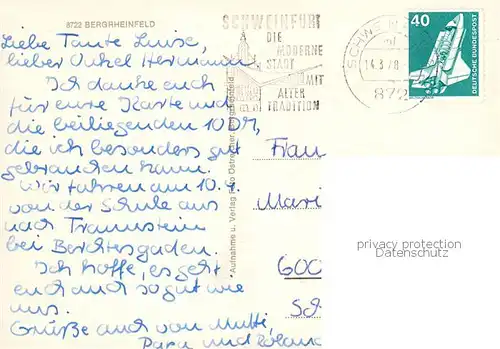 8722 BERGRHEINFELD
Liebe Tante Luise,
lieber Onkel Hermann
Ich danke euch
für eure Karte und
die beiliegenden 10 DM,
die ich besonders gut
gebrauchen kann.
Wir fahren am 10.4.
von der Schule aus
nach Traunstein
bei Berchtesgaden.
Ich hoffe, es geht
euch auch so gut wie
uns.
Grüße auch von Mutti,
Papa und Roland
Aufnahme u. Verlag Foto
SCHWEINFURT
DIE
MODERNE
STADT
MIT
ALTER
TRADITION
SCHWEIN
14.3.78
872
40
DEUTSCHE BUNDESPOST
Frau
Mari
600
Sch
privacy protection
Datenschutz